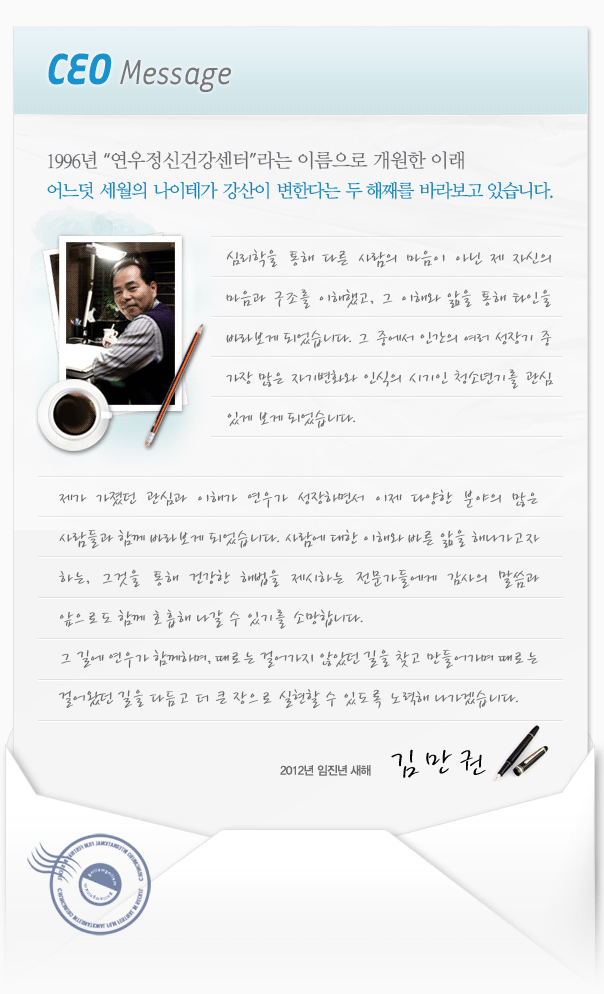 CEO Message
1996년 “연우정신건강센터”라는 이름으로 개원한 이래
어느덧 세월의 나이테가 강산이 변한다는 두 해째를 바라보고 있습니다.
심리학을 통해 다른 사람의 마음이 아닌 제 자신의
마음과 구조를 이해했고, 그 이해와 앎을 통해 타인을
바라보게 되었습니다. 그 중에서 인간의 여러 성장기 중
가장 많은 자기변화와 인식의 시기인 청소년기를 관심
있게 보게 되었습니다.
제가 가졌던 관심과 이해가 연우가 성장하면서 이제 다양한 분야의 많은
사람들과 함께 바라보게 되었습니다. 사람에 대한 이해와 바른 앎을 해나가고자
하는, 그것을 통해 건강한 해법을 제시하는 전문가들에게 감사의 말씀과
앞으로도 함께 호흡해 나갈 수 있기를 소망합니다.
그 길에 연우가 함께하며, 때로는 걸어가지 않았던 길을 찾고 만들어가며 때로는
걸어왔던 길을 다듬고 더 큰 장으로 실현할 수 있도록 노력해 나가겠습니다.
2012년 임진년 새해 김만권